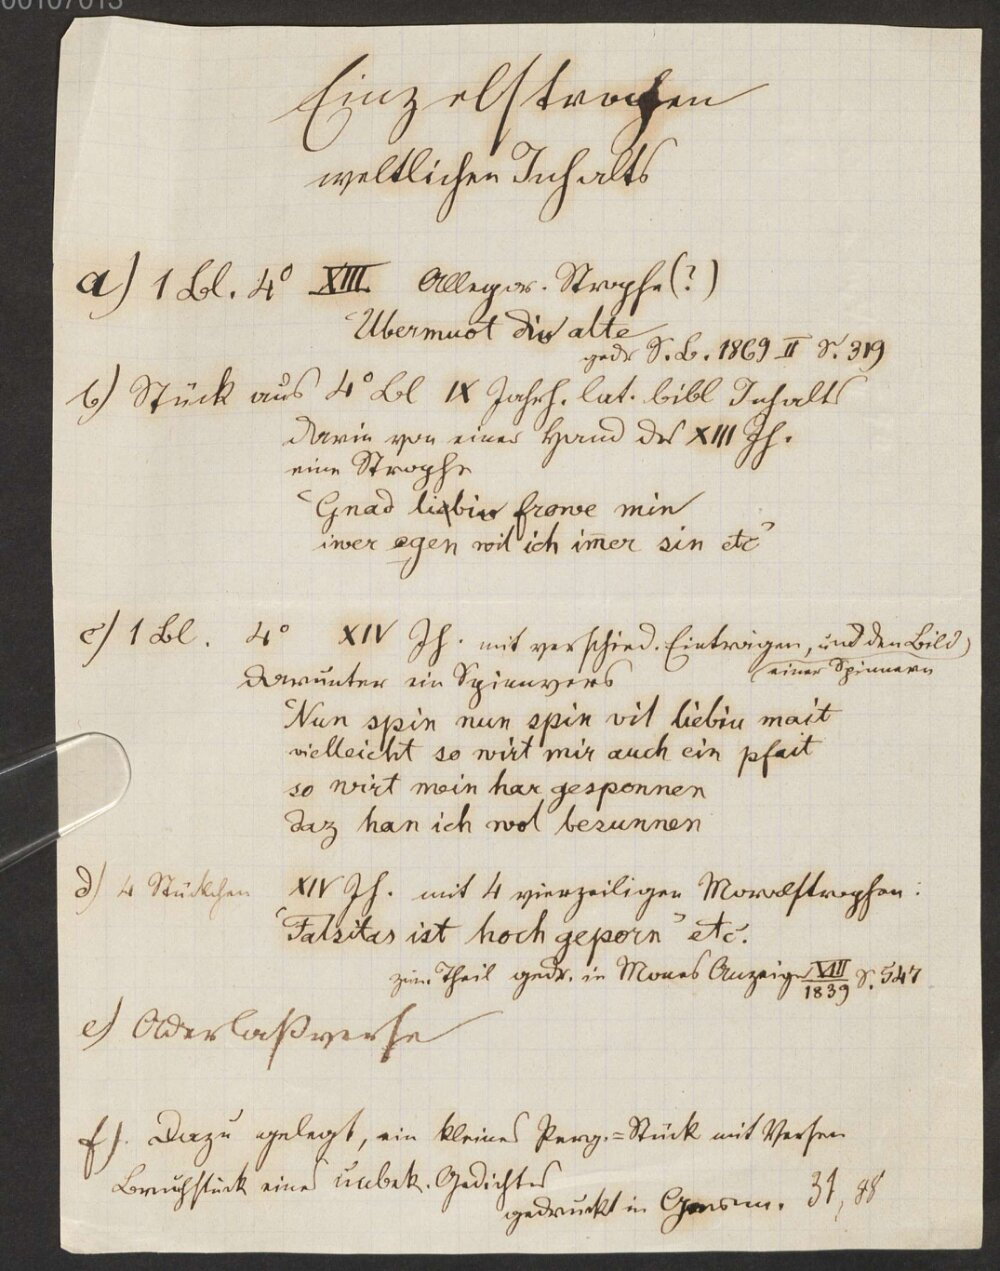 00107013
Einzelstrophen
weltlichen Inhalts
a) 1 Bl. 4° XIII. Allegor. Strophe (?)
"Ubermuot diu alte
gedr S. B. 1869 II S. 319
b) Stück aus 4° Bl IX Jahrh. lat. bibl Inhalts
darin von einer Hand des XIII Jh.
eine Strophe
"Gnad liebiu frowe min
iwer egen wil ich im̄er sin etc"
c) 1 Bl. 4° XIV Jh. mit verschied. Einträgen, und den Bild
einer Spinnern
darunter ein Spinnvers
"Nun spin nun spin vil liebiu mait
vielleicht so wirt mir auch ein pfait
so wirt mein har gesponnen
daz han ich wol besunnen
d) 4 Stückchen XIV Jh. mit 4 vierzeiligen Moralstrophen:
"Falsitas ist hoch geporn" etc.
zum Theil gedr. in Mones Anzeiger VIII 1839 S. 547
e) Aderlaßverse
f). Dazu gelegt, ein kleines Perg.=Stück mit Versen
Bruchstück eines unbek. Gedichtes
gedruckt in Germ. 31, 88